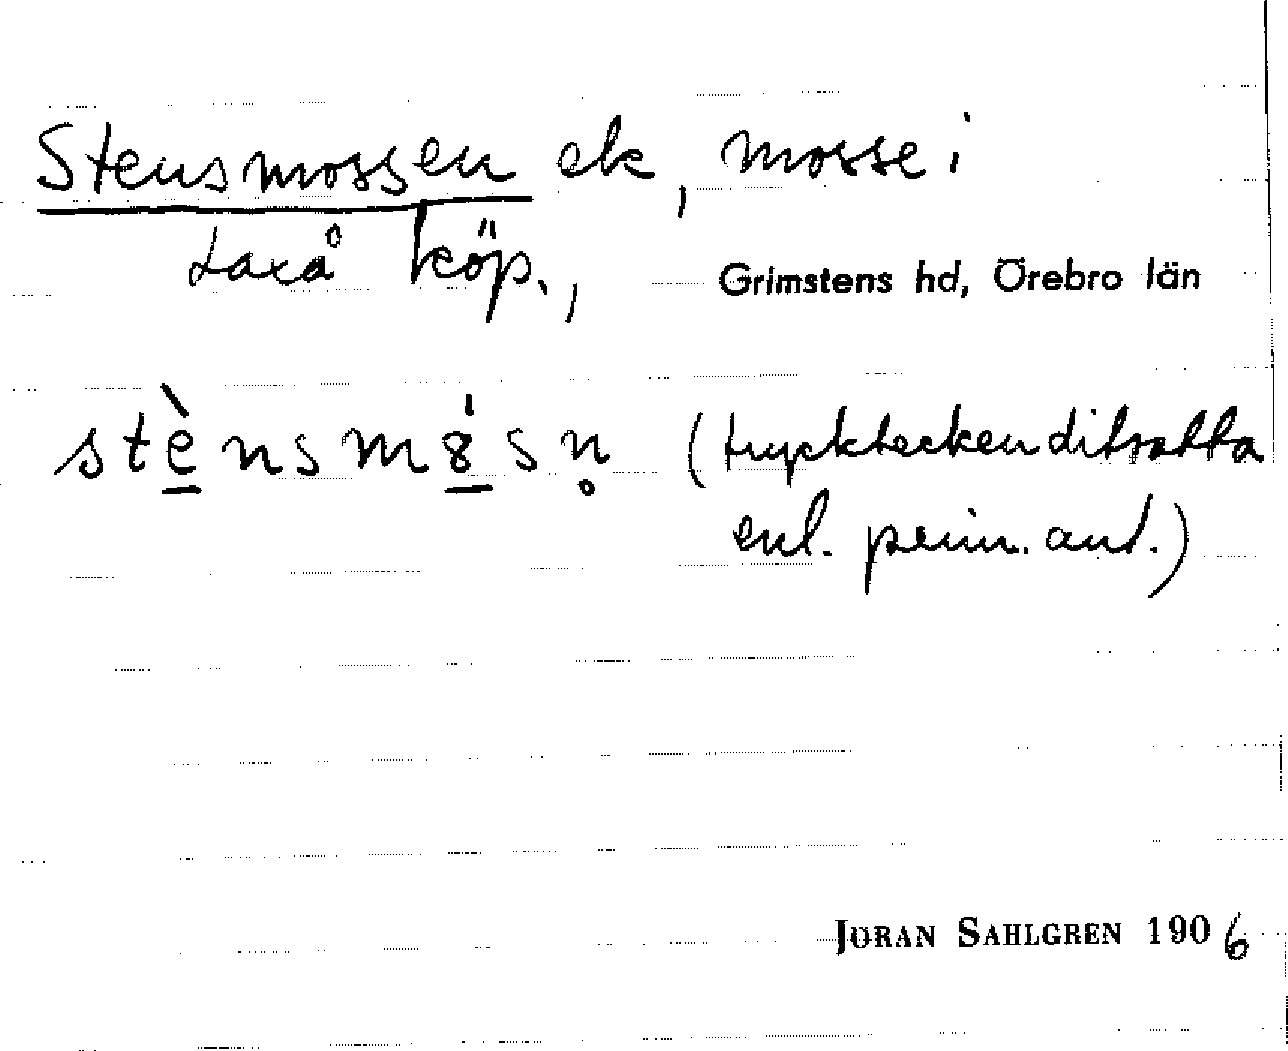 Stensmossen ek, mosse i
Laxå köp.,
Grimstens hd, Örebro län
stènsm8́sn̥ (trycktecken ditsatta
enl. prim. and.)
JÖRAN SAHLGREN 1906